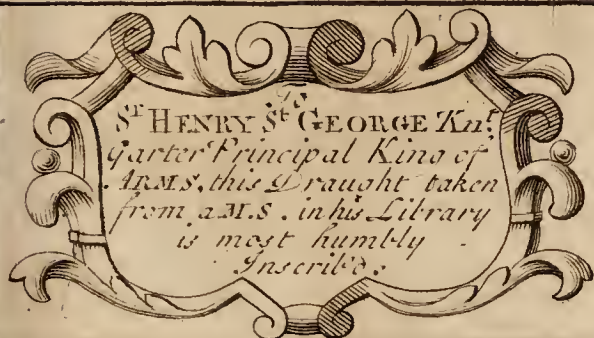 To
Sr HENRY St GEORGE Knt.
Garter Principal King of
ARMS, this Draught taken
from a M.S. in his Library
is most humbly
Inscrib'd.